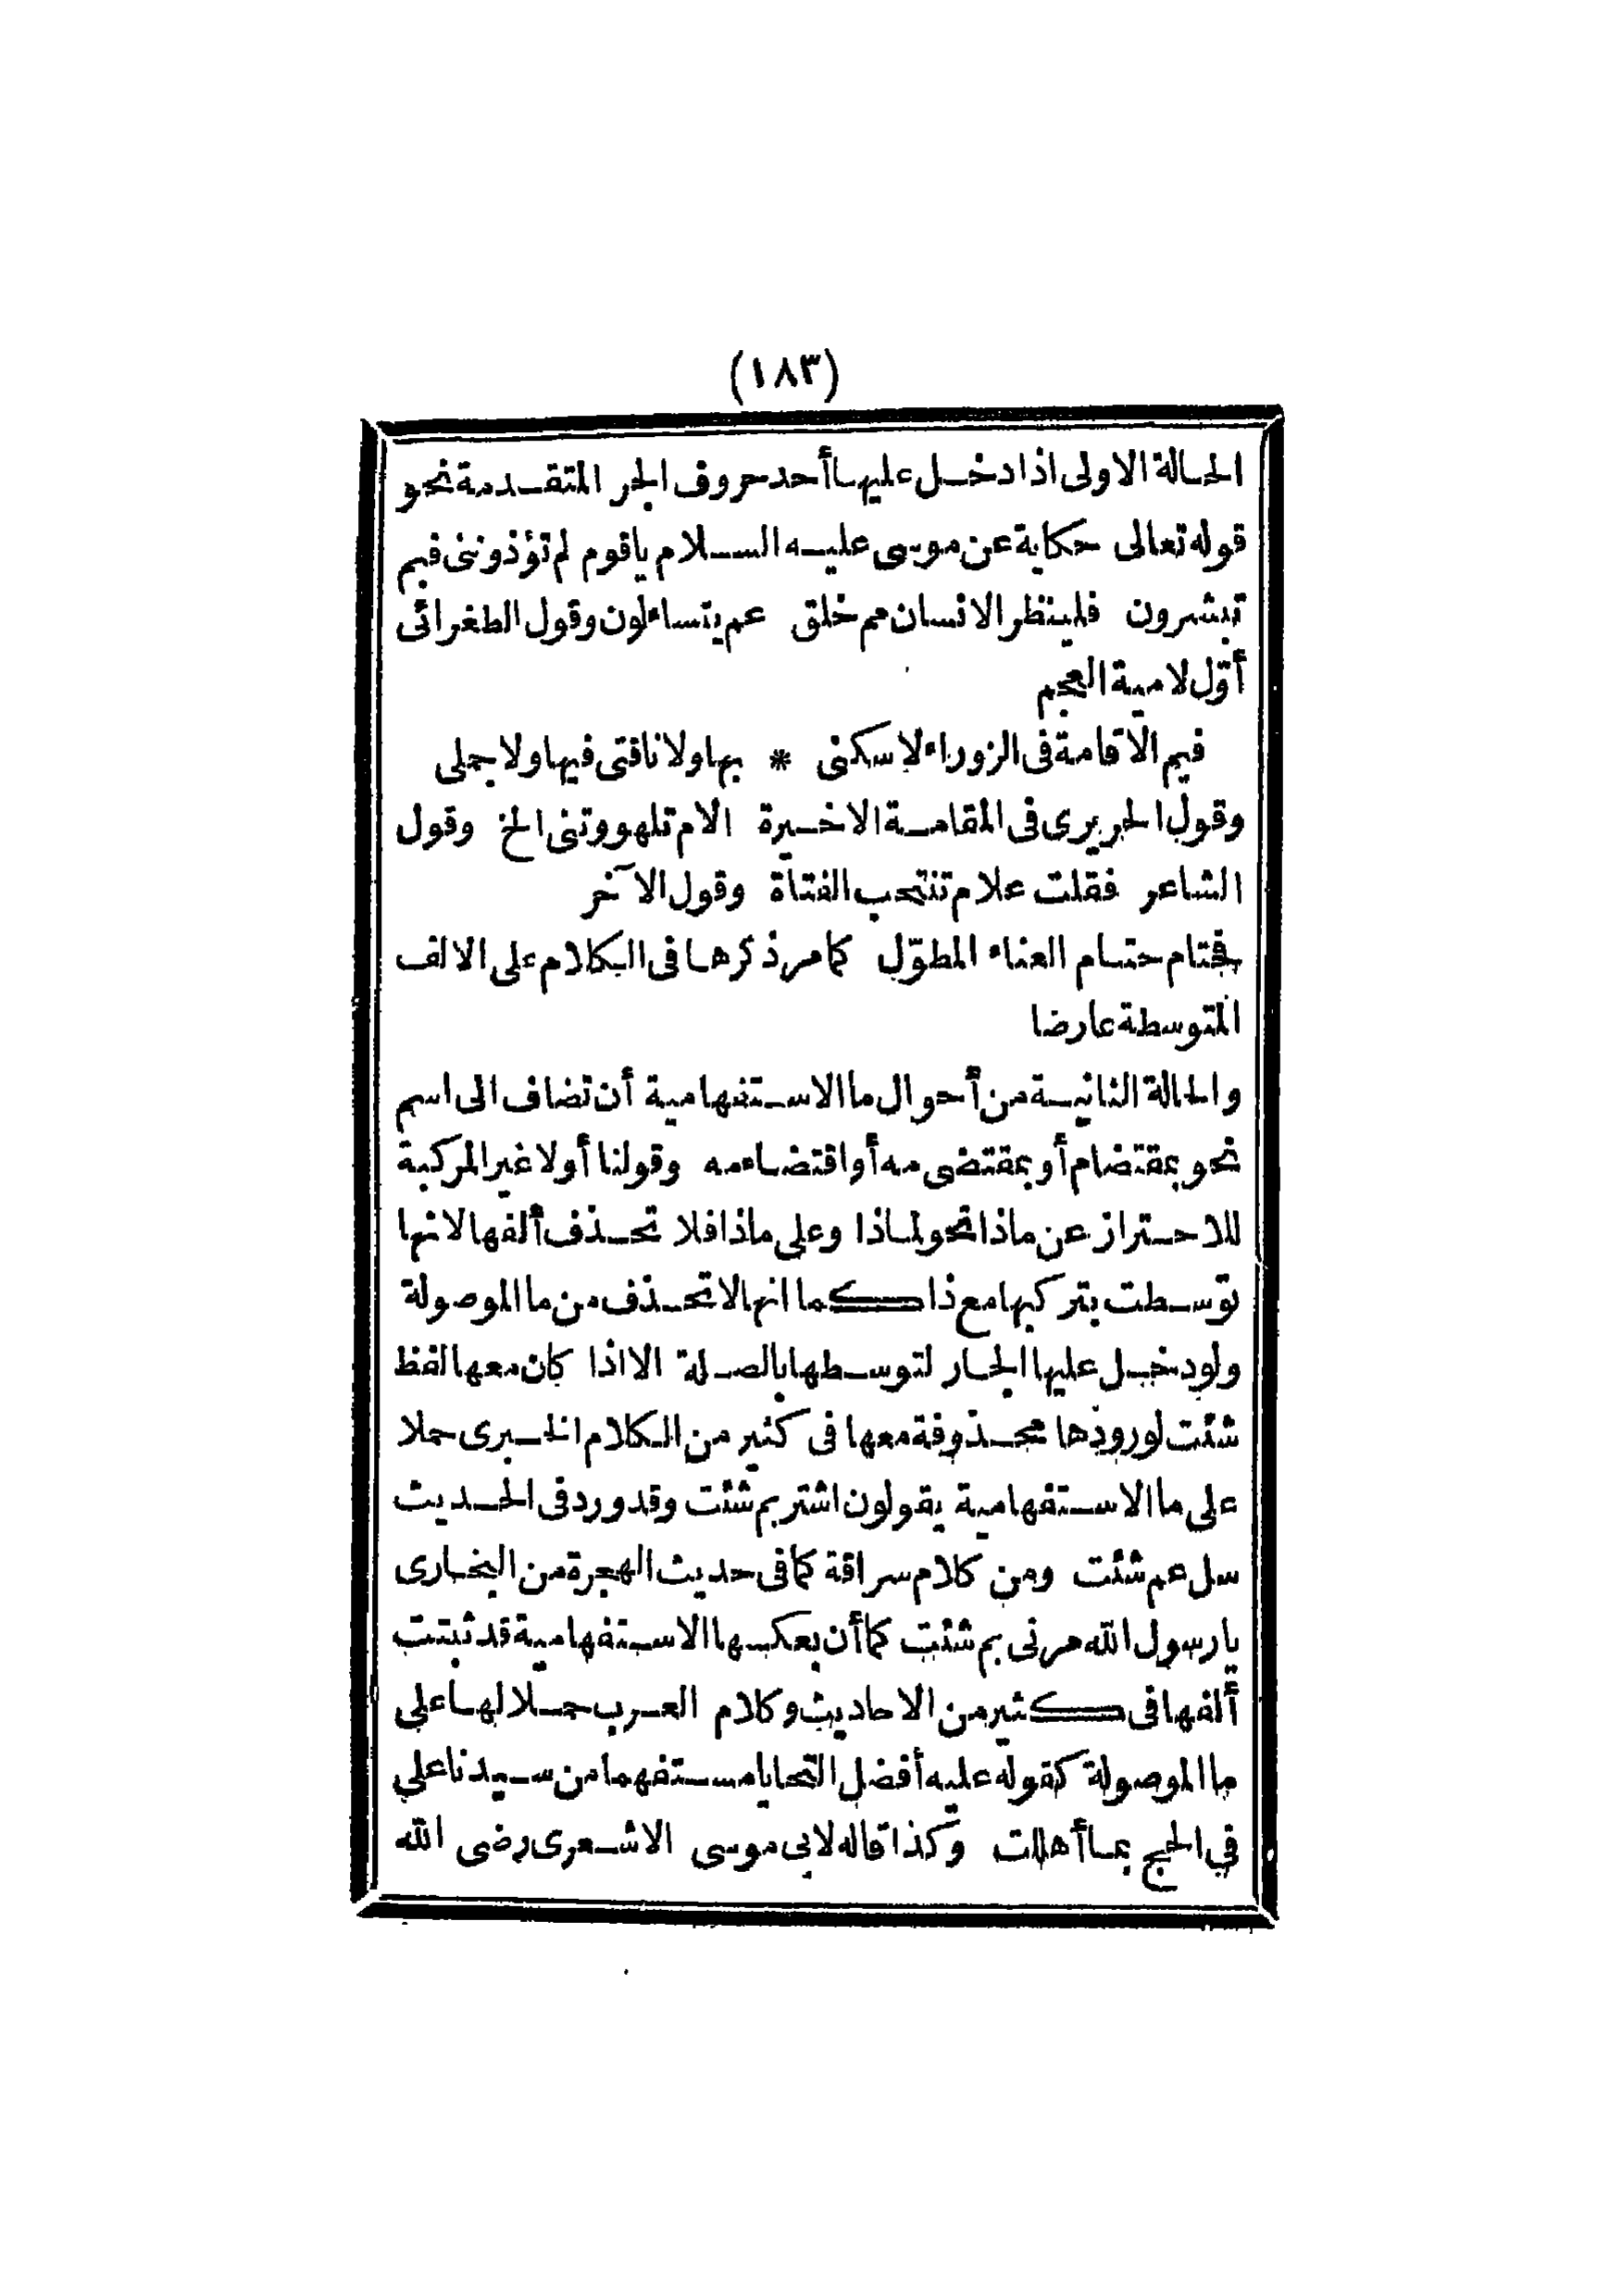 (١٨٣)
الحالة الاولى اذا دخل عليها أحد حروف الجر المتقدمة نحو
قوله تعالى حكاية عن موسى عليه السلام ياقوم لم تؤذوننى فبم
تبشرون فلينظر الانسان مم خلق عم يتساءلون وقول الطغرائى
أوّل لامية العجم
فيم الاقامة فى الزوراء لا سكنى * بها ولا ناقتى فيها ولا جملى
وقول الحريرى فى المقامة الاخيرة الام تلهو وتنى الخ وقول
الشاعر فقلت علام تنتحب الفتاة وقول الآخر
فحتام حتام العناء المطوّل كما مر ذكرها فى الكلام على الالف
المتوسطة عارضا
والحالة الثانية من أحوال ما الاستفهامية أن تضاف الى اسم
نحو بمقتضام أو بمقتضى مه أو اقتضاء مه وقولنا أولا غير المركبة
للاحتراز عن ماذا نحو لماذا وعلى ماذا فلا تحذف ألفها لانها
توسطت بتركبها مع ذا كما انها لا تحذف من ما الموصولة
ولو دخل عليها الجار لتوسطها بالصلة الا اذا كان معها لفظ
شئت لورودها محذوفة معها فى كثير من الكلام الخبرى حملا
على ما الاستفهامية يقولون اشتر بم شئت وقد ورد فى الحديث
سل عم شئت ومن كلام سراقة كما فى حديث الهجرة من البخارى
يا رسول الله مرنى بم شئت كما أن بعكسها الاستفهامية قد ثبتت
ألفها فى كثير من الاحاديث وكلام العرب حملا لها على
ما الموصولة كقوله عليه أفضل التحايا مستفهما من سيدنا على
في الحج بما أهللت وكذا قاله لابى موسى الاشعرى رضى الله